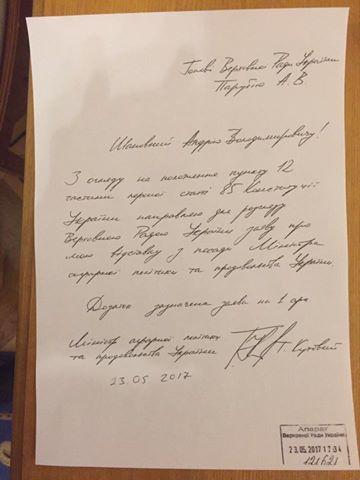 Голові Верховної Ради України
Парубію А. В.
Шановний Андрію Володимировичу!
З огляду на положення пункту 12
частини першої статті 85 Конституції
України направляю для розгляду
Верховною Радою України заяву про
мою відставку з посади Міністра
аграрної політики та продовольства України.
Додаток: зазначена заява на 1 арк
Міністр аграрної політики
та продовольства України
Т. Кутовий
23.05.2017
Апарат
Верховної Ради України
23.05.2017 17:34